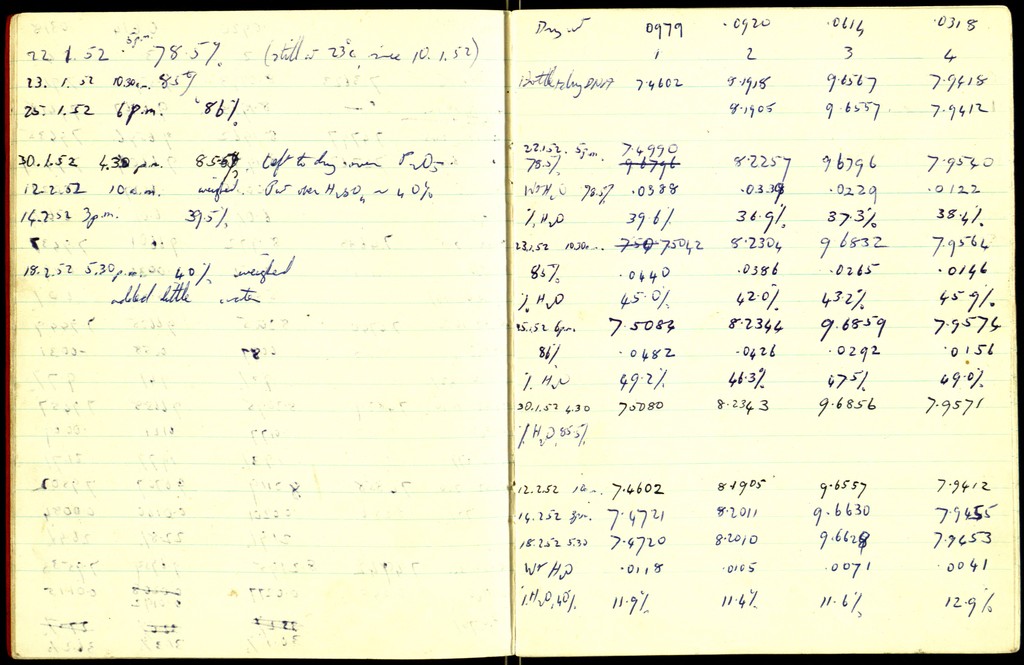 22.1.52 5pm. 78.5% (still at 23°c since 10.1.52)
23.1.52 10.30am. 85%
25.1.52 6p.m. 86%
30.1.52 4.30 p.m. 85.5% left to dry over P2O5
12.2.52 10a.m. weighed. Put over H2SO4 ~ 40%
14.2.52 3p.m. 39.5%
18.2.52 5.30p.m. 40% weighed
added little water
Dry wt .0979 .0920 .0614 .0318
1 2 3 4
bottle + dry DNA 7.4602 8.1918 9.6567 7.9418
8.1905 9.6557 7.9412
22.1.52. 5pm. 7.4990
78.5% 9.6796 8.2257 9.6796 7.9540
Wt H2O 78.5% .0388 .0339 .0229 .0122
% H2O 39.6% 36.9% 37.3% 38.4%
23.1.52 10.30am. 750 7.5042 8.2304 9.6832 7.9564
85% .0440 .0386 .0265 .0146
% H2O 45.0% 42.0% 43.2% 45.9%
25.1.52 6pm. 7.5084 8.2344 9.6859 7.9574
86% .0482 .0426 .0292 .0156
% H2O 49.2% 46.3% 47.5% 49.0%
30.1.52 4.30 7.5080 8.2343 9.6856 7.9571
% H2O, 85.5%
12.2.52 7.4602 8.1905 9.6557 7.9412
14.2.52 3pm. 7.4721 8.2011 9.6630 7.9455
18.2.52 5.30 7.4720 8.2010 9.6628 7.9453
Wt H2O .0118 .0105 .0071 .0041
% H2O, 40% 11.9% 11.4% 11.6% 12.9%